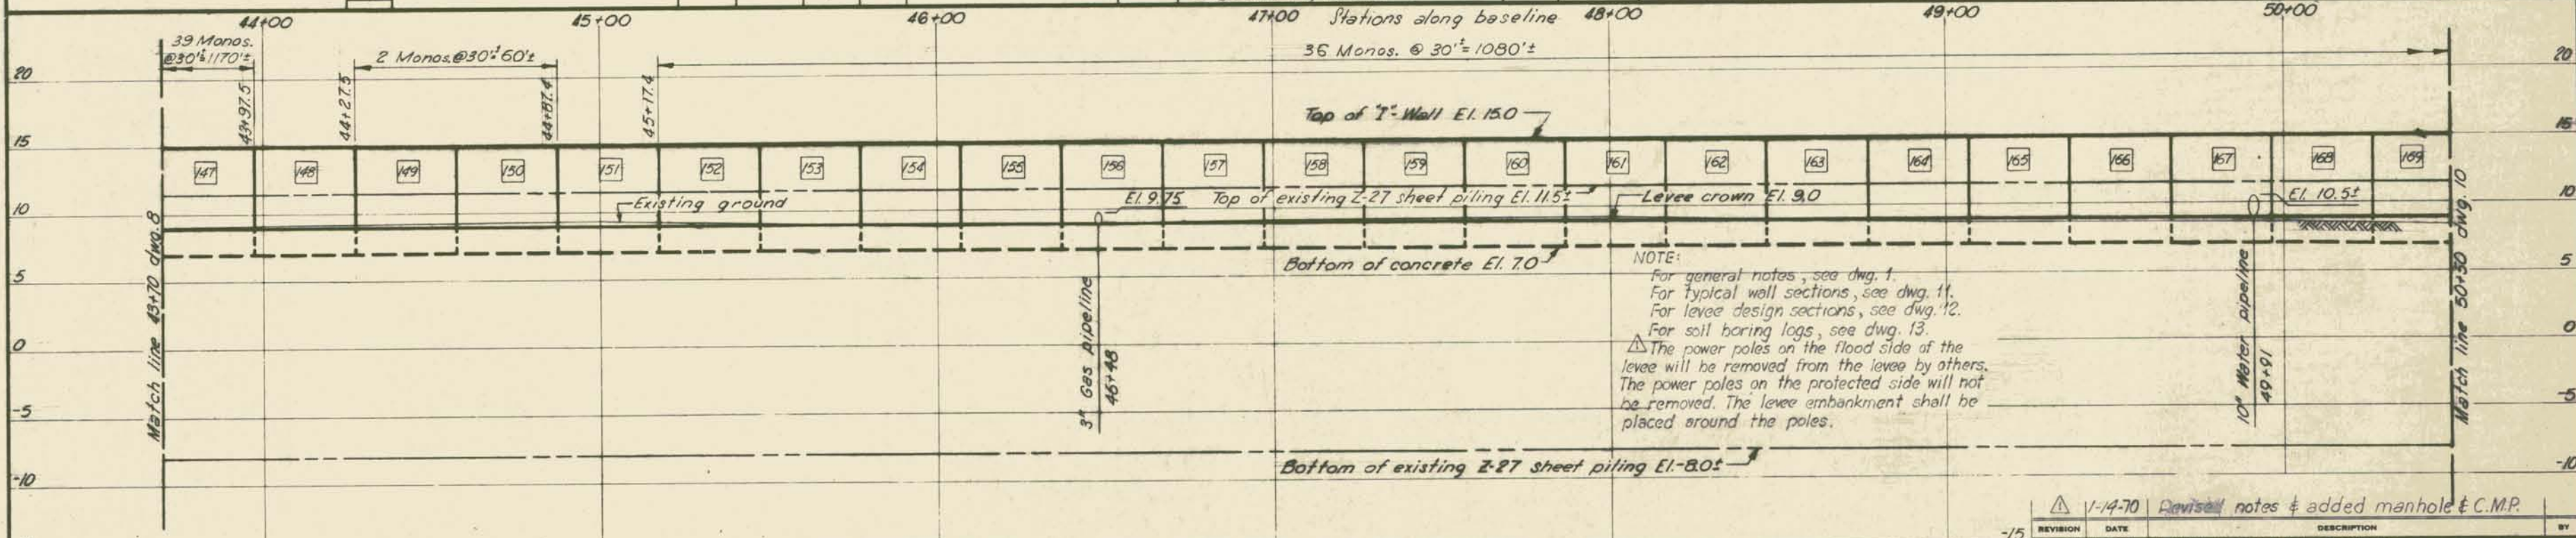 44+00 45+00 46+00 47+00 Stations along baseline 48+00 49+00 50+00
39 Monos.
@30'±1170'±
2 Monos.@30'±60'±
36 Monos. @ 30'±=1080'±
20 20
43+97.5
44+27.5
44+87.4
45+17.4
Top of "I"-Wall El. 15.0
15 15
147 148 149 150 151 152 153 154 155 156 157 158 159 160 161 162 163 164 165 166 167 168 169
Existing ground
El. 9.75
Top of existing Z-27 sheet piling El. 11.5±
Levee crown El. 9.0
El. 10.5±
10 10
Bottom of concrete El. 7.0
5 5
Match line 43+70 dwg. 8
3" Gas pipeline
46+48
NOTE:
For general notes, see dwg. 1.
For typical wall sections, see dwg. 11.
For levee design sections, see dwg. 12.
For soil boring logs, see dwg. 13.
1 The power poles on the flood side of the
levee will be removed from the levee by others.
The power poles on the protected side will not
be removed. The levee embankment shall be
placed around the poles.
10" Water pipeline
49+91
Match line 50+50 dwg. 10
0 0
-5 -5
Bottom of existing Z-27 sheet piling El.-8.0±
-10 -10
-15
1 1-14-70 Revised notes & added manhole & C.M.P.
REVISION DATE DESCRIPTION BY